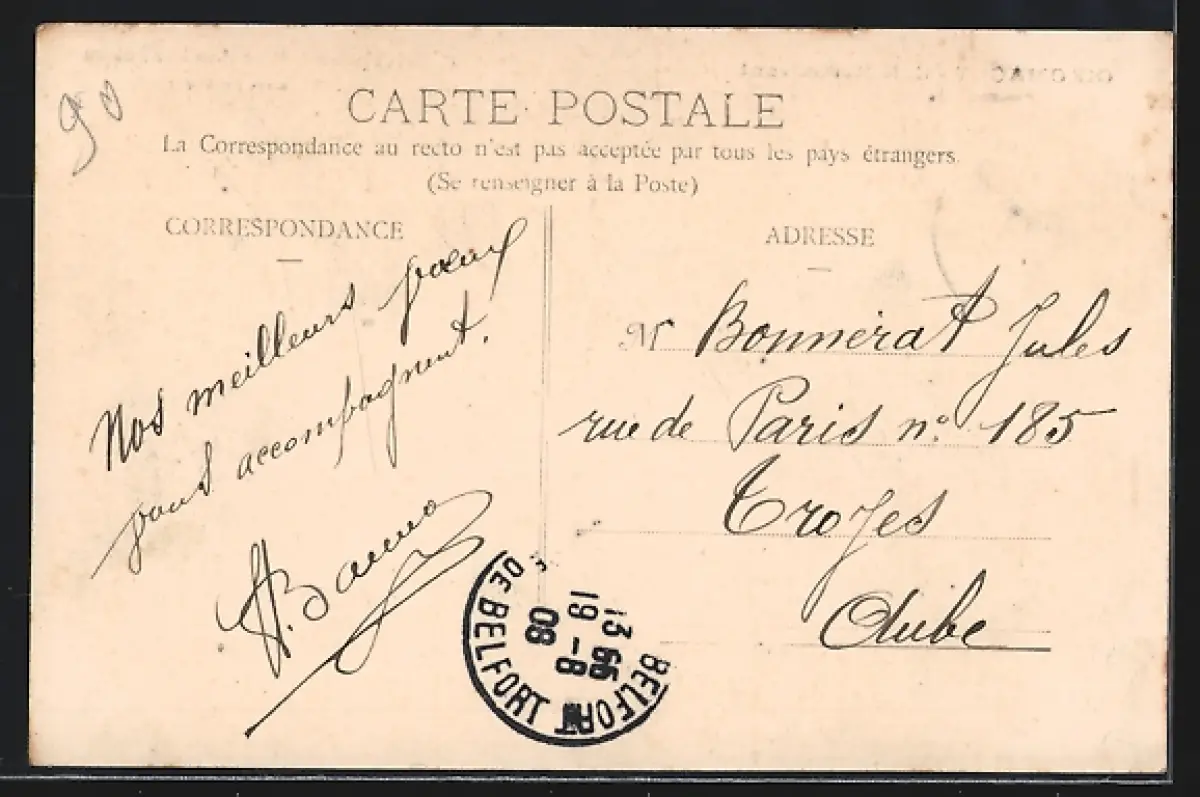 90
CARTE POSTALE
La Correspondance au recto n'est pas acceptée par tous les pays étrangers
(Se renseigner à la Poste)
CORRESPONDANCE
Nos meilleurs vœux
vous accompagnent.
ADRESSE
Mr Bonnérat Jules
rue de Paris n° 185
Troyes
Aube
BELFORT
13 55
19 - 8
08
DE BELFORT